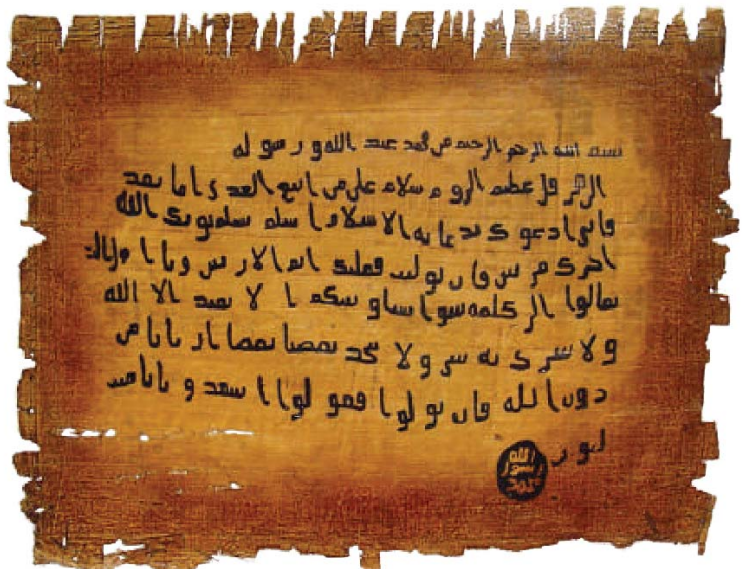 بسم الله الرحمن الرحيم من محمد عبد الله و رسو له
الى هرقل عظيم الروم سلام على من اتبع الهدى اما بعد
فانى ادعوك بدعاية الاسلام اسلم تسلم يوتك الله
اجرك مرتين فان توليت فعليك اثم الاريسين ويا اهل
تعالوا الى كلمه سوا بيننا وبينكم ا لا نعبد الا الله
ولا نشرك به شى و لا يتخذ بعضنا بعضا اربابا من
دون الله فان تو لوا فقو لوا اشهدو بانا مسـ
لمو ن
الله
رسول
محمد